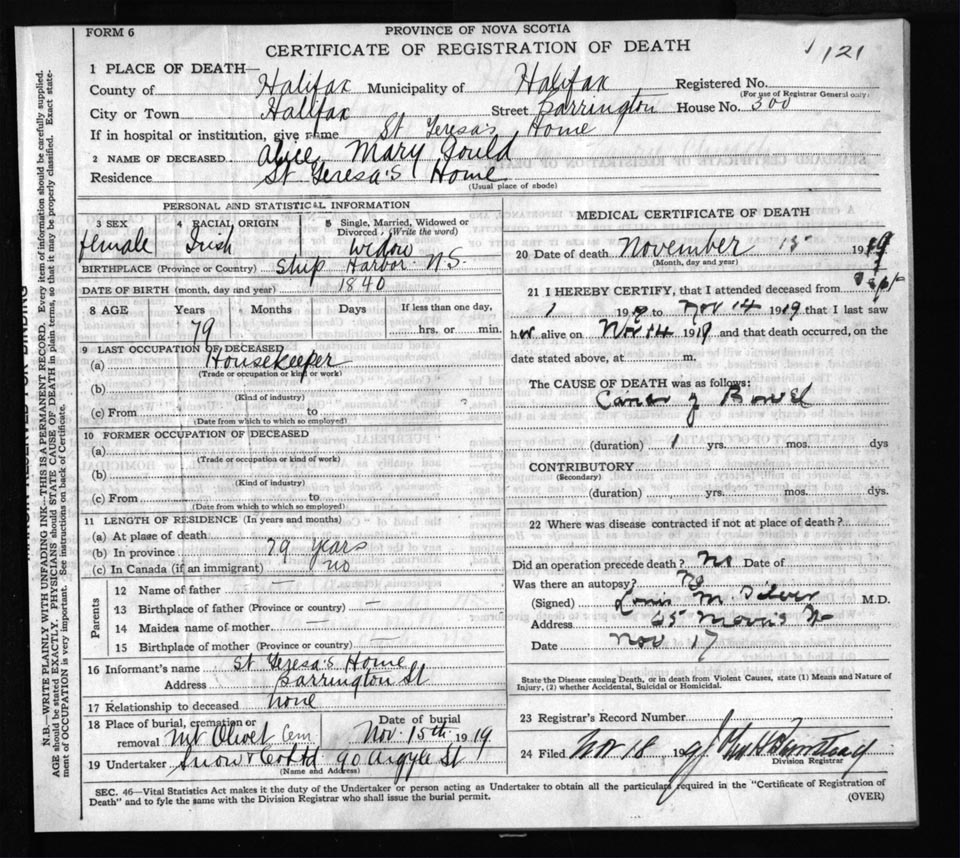 FORM 6
PROVINCE OF NOVA SCOTIA
CERTIFICATE OF REGISTRATION OF DEATH
121
1 PLACE OF DEATH—
County of Halifax Municipality of Halifax Registered No.
(For use of Registrar General only)
City or Town Halifax Street Barrington House No. 500
If in hospital or institution, give name St Teresa's Home
2 NAME OF DECEASED. Alice Mary Gould
Residence St Teresa's Home
(Usual place of abode)
PERSONAL AND STATISTICAL INFORMATION
3 SEX 4 RACIAL ORIGIN 5 Single, Married, Widowed or
Divorced (Write the word)
female Irish Widow
BIRTHPLACE (Province or Country) Ship Harbor N.S.
DATE OF BIRTH (month, day and year) 1840
8 AGE Years Months Days If less than one day,
79 hrs. or min.
9 LAST OCCUPATION OF DECEASED
(a) Housekeeper
(Trade or occupation or kind or work)
(b)
(Kind of industry)
(c) From to
(Date from which to which so employed)
10 FORMER OCCUPATION OF DECEASED
(a)
(Trade or occupation or kind of work)
(b)
(Kind of industry)
(c) From to
(Date from which to which so employed)
11 LENGTH OF RESIDENCE (In years and months)
(a) At place of death
(b) In province 79 years
(c) In Canada (if an immigrant) no
Parents
12 Name of father —
13 Birthplace of father (Province or country) —
14 Maiden name of mother —
15 Birthplace of mother (Province or country) —
16 Informant's name St Teresa's Home
Address Barrington St
17 Relationship to deceased none
18 Place of burial, cremation or Date of burial
removal Mt Olivet Cem Nov. 15th 1919
19 Undertaker Snow & Co Ltd 90 Argyle St
(Name and Address)
MEDICAL CERTIFICATE OF DEATH
20 Date of death November 15 1919
(Month, day and year)
21 I HEREBY CERTIFY, that I attended deceased from Sept
1 19 to Nov 14 1919 that I last saw
her alive on Nov 14 1919 and that death occurred, on the
date stated above, at m.
The CAUSE OF DEATH was as follows:
Cancer of Bowel
(duration) 1 yrs. mos. dys
CONTRIBUTORY
(Secondary)
(duration) yrs. mos. dys.
22 Where was disease contracted if not at place of death?
Did an operation precede death? No Date of
Was there an autopsy? No
(Signed) Louis M. Silver M.D.
Address 65 Morris
Date Nov 17
State the Disease causing Death, or in death from Violent Causes, state (1) Means and Nature of
Injury, (2) whether Accidental, Suicidal or Homicidal.
23 Registrar's Record Number
24 Filed Nov 18 19
Division Registrar
SEC. 46—Vital Statistics Act makes it the duty of the Undertaker or person acting as Undertaker to obtain all the particulars required in the "Certificate of Registration of
Death" and to fyle the same with the Division Registrar who shall issue the burial permit.
(OVER)
N.B.—WRITE PLAINLY WITH UNFADING INK—THIS IS A PERMANENT RECORD. Every item of information should be carefully supplied.
AGE should be stated EXACTLY. PHYSICIANS should STATE CAUSE OF DEATH in plain terms, so that it may be properly classified. Exact state-
ment of OCCUPATION is very important. See instructions on back of Certificate.